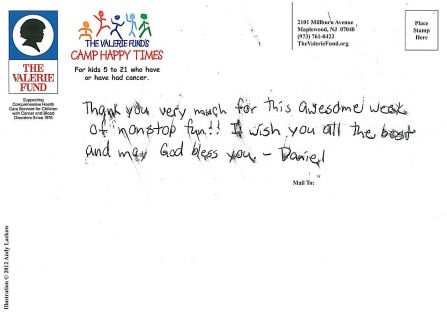 THE VALERIE FUND'S
CAMP HAPPY TIMES
For kids 5 to 21 who have
or have had cancer.
2101 Millburn Avenue
Maplewood, NJ 07040
(973) 761-0422
TheValerieFund.org
Place
Stamp
Here
THE
VALERIE
FUND
Supporting
Comprehensive Health
Care Services for Children
with Cancer and Blood
Disorders Since 1976
Thank you very much for this awesome week
of nonstop fun!! I wish you all the best
and may God bless you - Daniel
Mail To:
Illustration © 2012 Andy Laskow